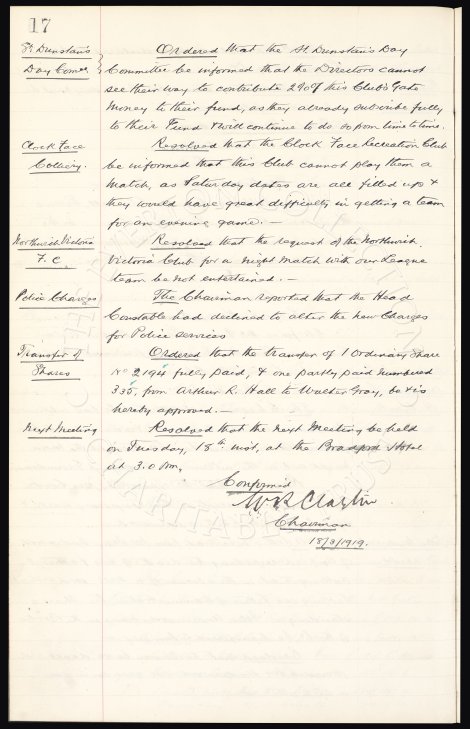 17
St. Dunstan's Ordered that the St. Dunstan's Day
Day Comee. Committee be informed that the Directors cannot
see their way to contribute 2% of this Club's Gate
Money to their fund, as they already subscribe fully
to their Fund & will continue to do so from time to time.
Clock Face Resolved that the Clock Face Recreation Club
Colliery. be informed that this Club cannot play them a
match, as Saturday dates are all filled up &
they would have great difficulty in getting a team
for an evening game. —
Northwich Victoria Resolved that the request of the Northwich
F. C. Victoria Club for a night match with our League
team be not entertained. —
Police Charges The Chairman reported that the Head
Constable had declined to alter the new Charges
for Police services
Transfer of Ordered that the transfer of 1 Ordinary Share
Shares No 2194 fully paid, & one partly paid numbered
335, from Arthur R. Hall to Walter Gray, be & is
hereby approved. —
Next Meeting Resolved that the next Meeting be held
on Tuesday, 18th inst, at the Bradford Hotel
at 3.0 Pm,
Confirmed
W R Clayton
Chairman
18/3/1919.